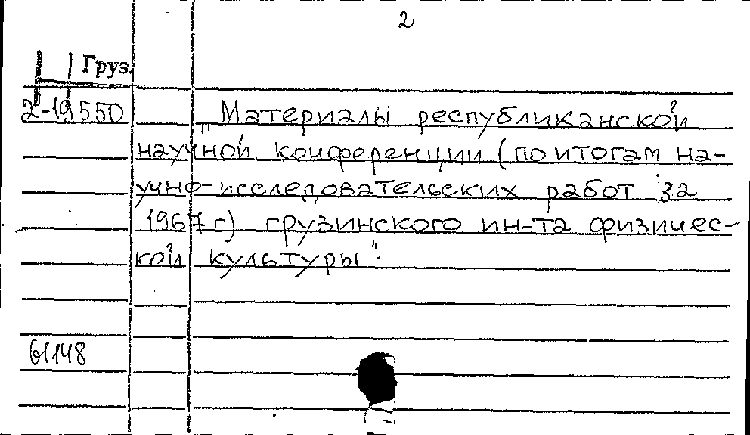 2
Груз.
2-19550
"Материалы республиканской
научной конференции (по итогам на-
учно-исследовательских работ за
1967 г) грузинского ин-та физичес-
кой культуры".
61148